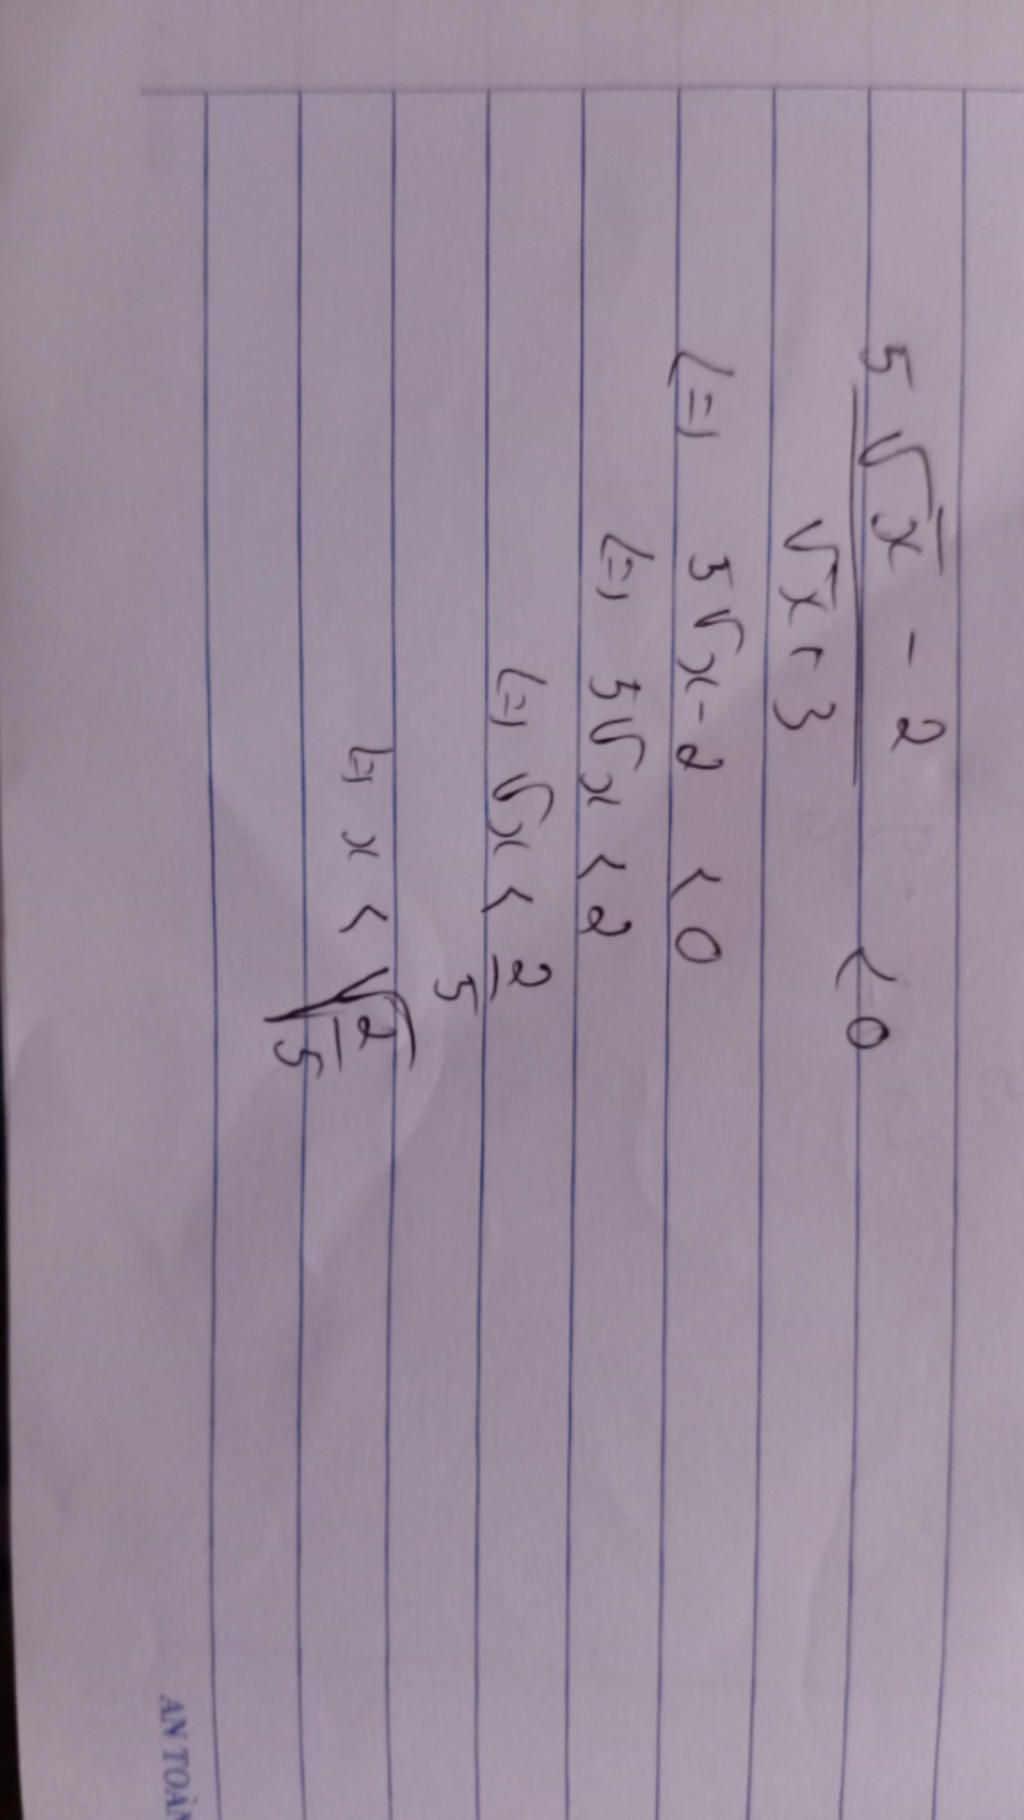 5√x - 2 / √x + 3 < 0
<=> 5√x - 2 < 0
<=> 5√x < 2
<=> √x < 2/5
<=> x < √2/5
AN TOÀN